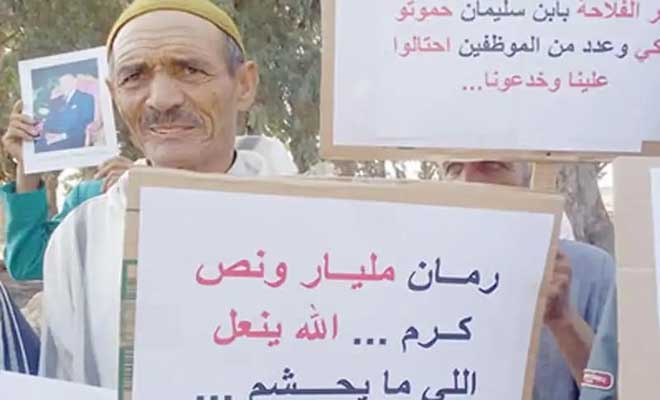 ر الفلاحة بابن سليمان حموتو
كي وعدد من الموظفين احتالوا
علينا وخدعونا...
رمان مليار ونص
كرم ... الله ينعل
اللي ما يحشم ...